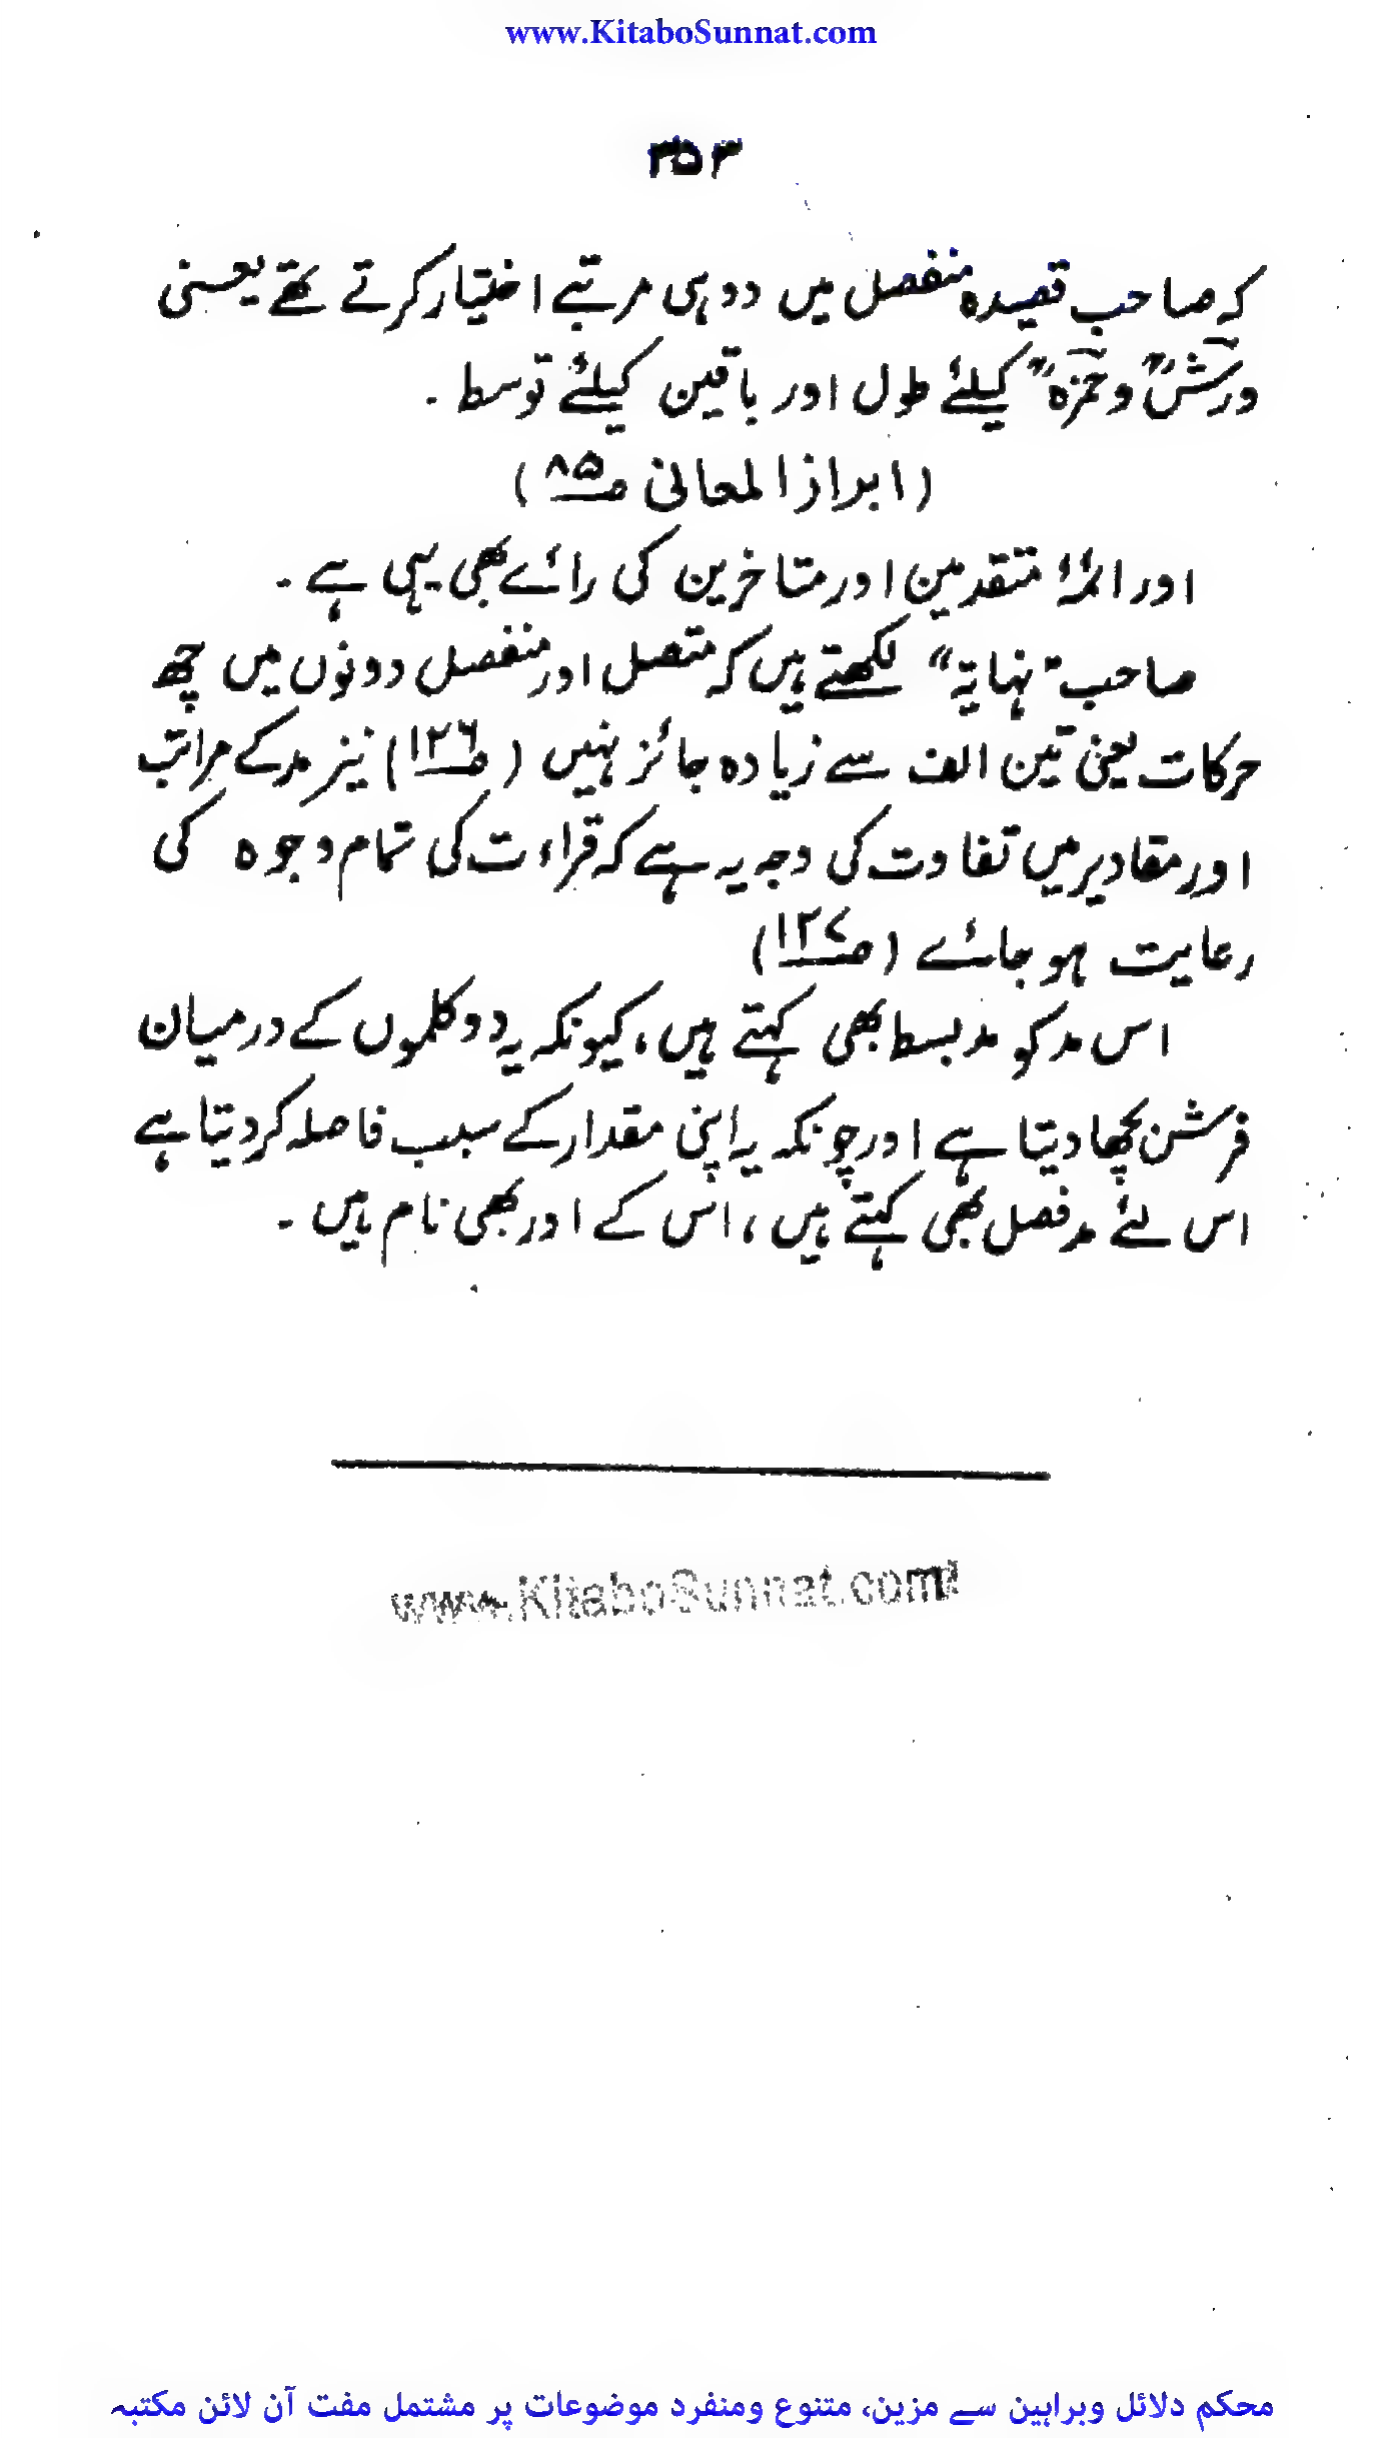 www.KitaboSunnat.com
۳۵۳
کہ صاحب قصیدہ منفصل میں دو ہی مرتبے اختیار کرتے تھے یعنی
ورشؒ وحمزہؒ کیلئے طول اور باقین کیلئے توسط ۔
(ابراز المعانی صـ۸۵)
اور ائمۂ متقدمین اور متاخرین کی رائے بھی یہی ہے ۔
صاحب "نہایۃ" لکھتے ہیں کہ متصل اور منفصل دونوں میں چھ
حرکات یعنی تین الف سے زیادہ جائز نہیں (صـ۱۲۶) نیز مد کے مراتب
اور مقادیر میں تفاوت کی وجہ یہ ہے کہ قراءت کی تمام وجوہ کی
رعایت ہو جائے (صـ۱۲۷)
اس مد کو مد بسط بھی کہتے ہیں، کیونکہ یہ دو کلموں کے درمیان
فرشن بچھا دیتا ہے اور چونکہ یہ اپنی مقدار کے سبب فاصلہ کر دیتا ہے
اس لئے مد فصل بھی کہتے ہیں، اس کے اور بھی نام ہیں ۔
www.KitaboSunnat.com
محکم دلائل وبراہین سے مزین، متنوع ومنفرد موضوعات پر مشتمل مفت آن لائن مکتبہ